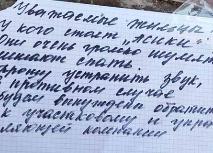 Уважаемые жильцы
у кого стоят "ясики".
Они очень громко шумят
мешают спать.
Прошу устранить звук,
в противном случае
будем вынуждены обратит
к участковому и упра
ляющей компании